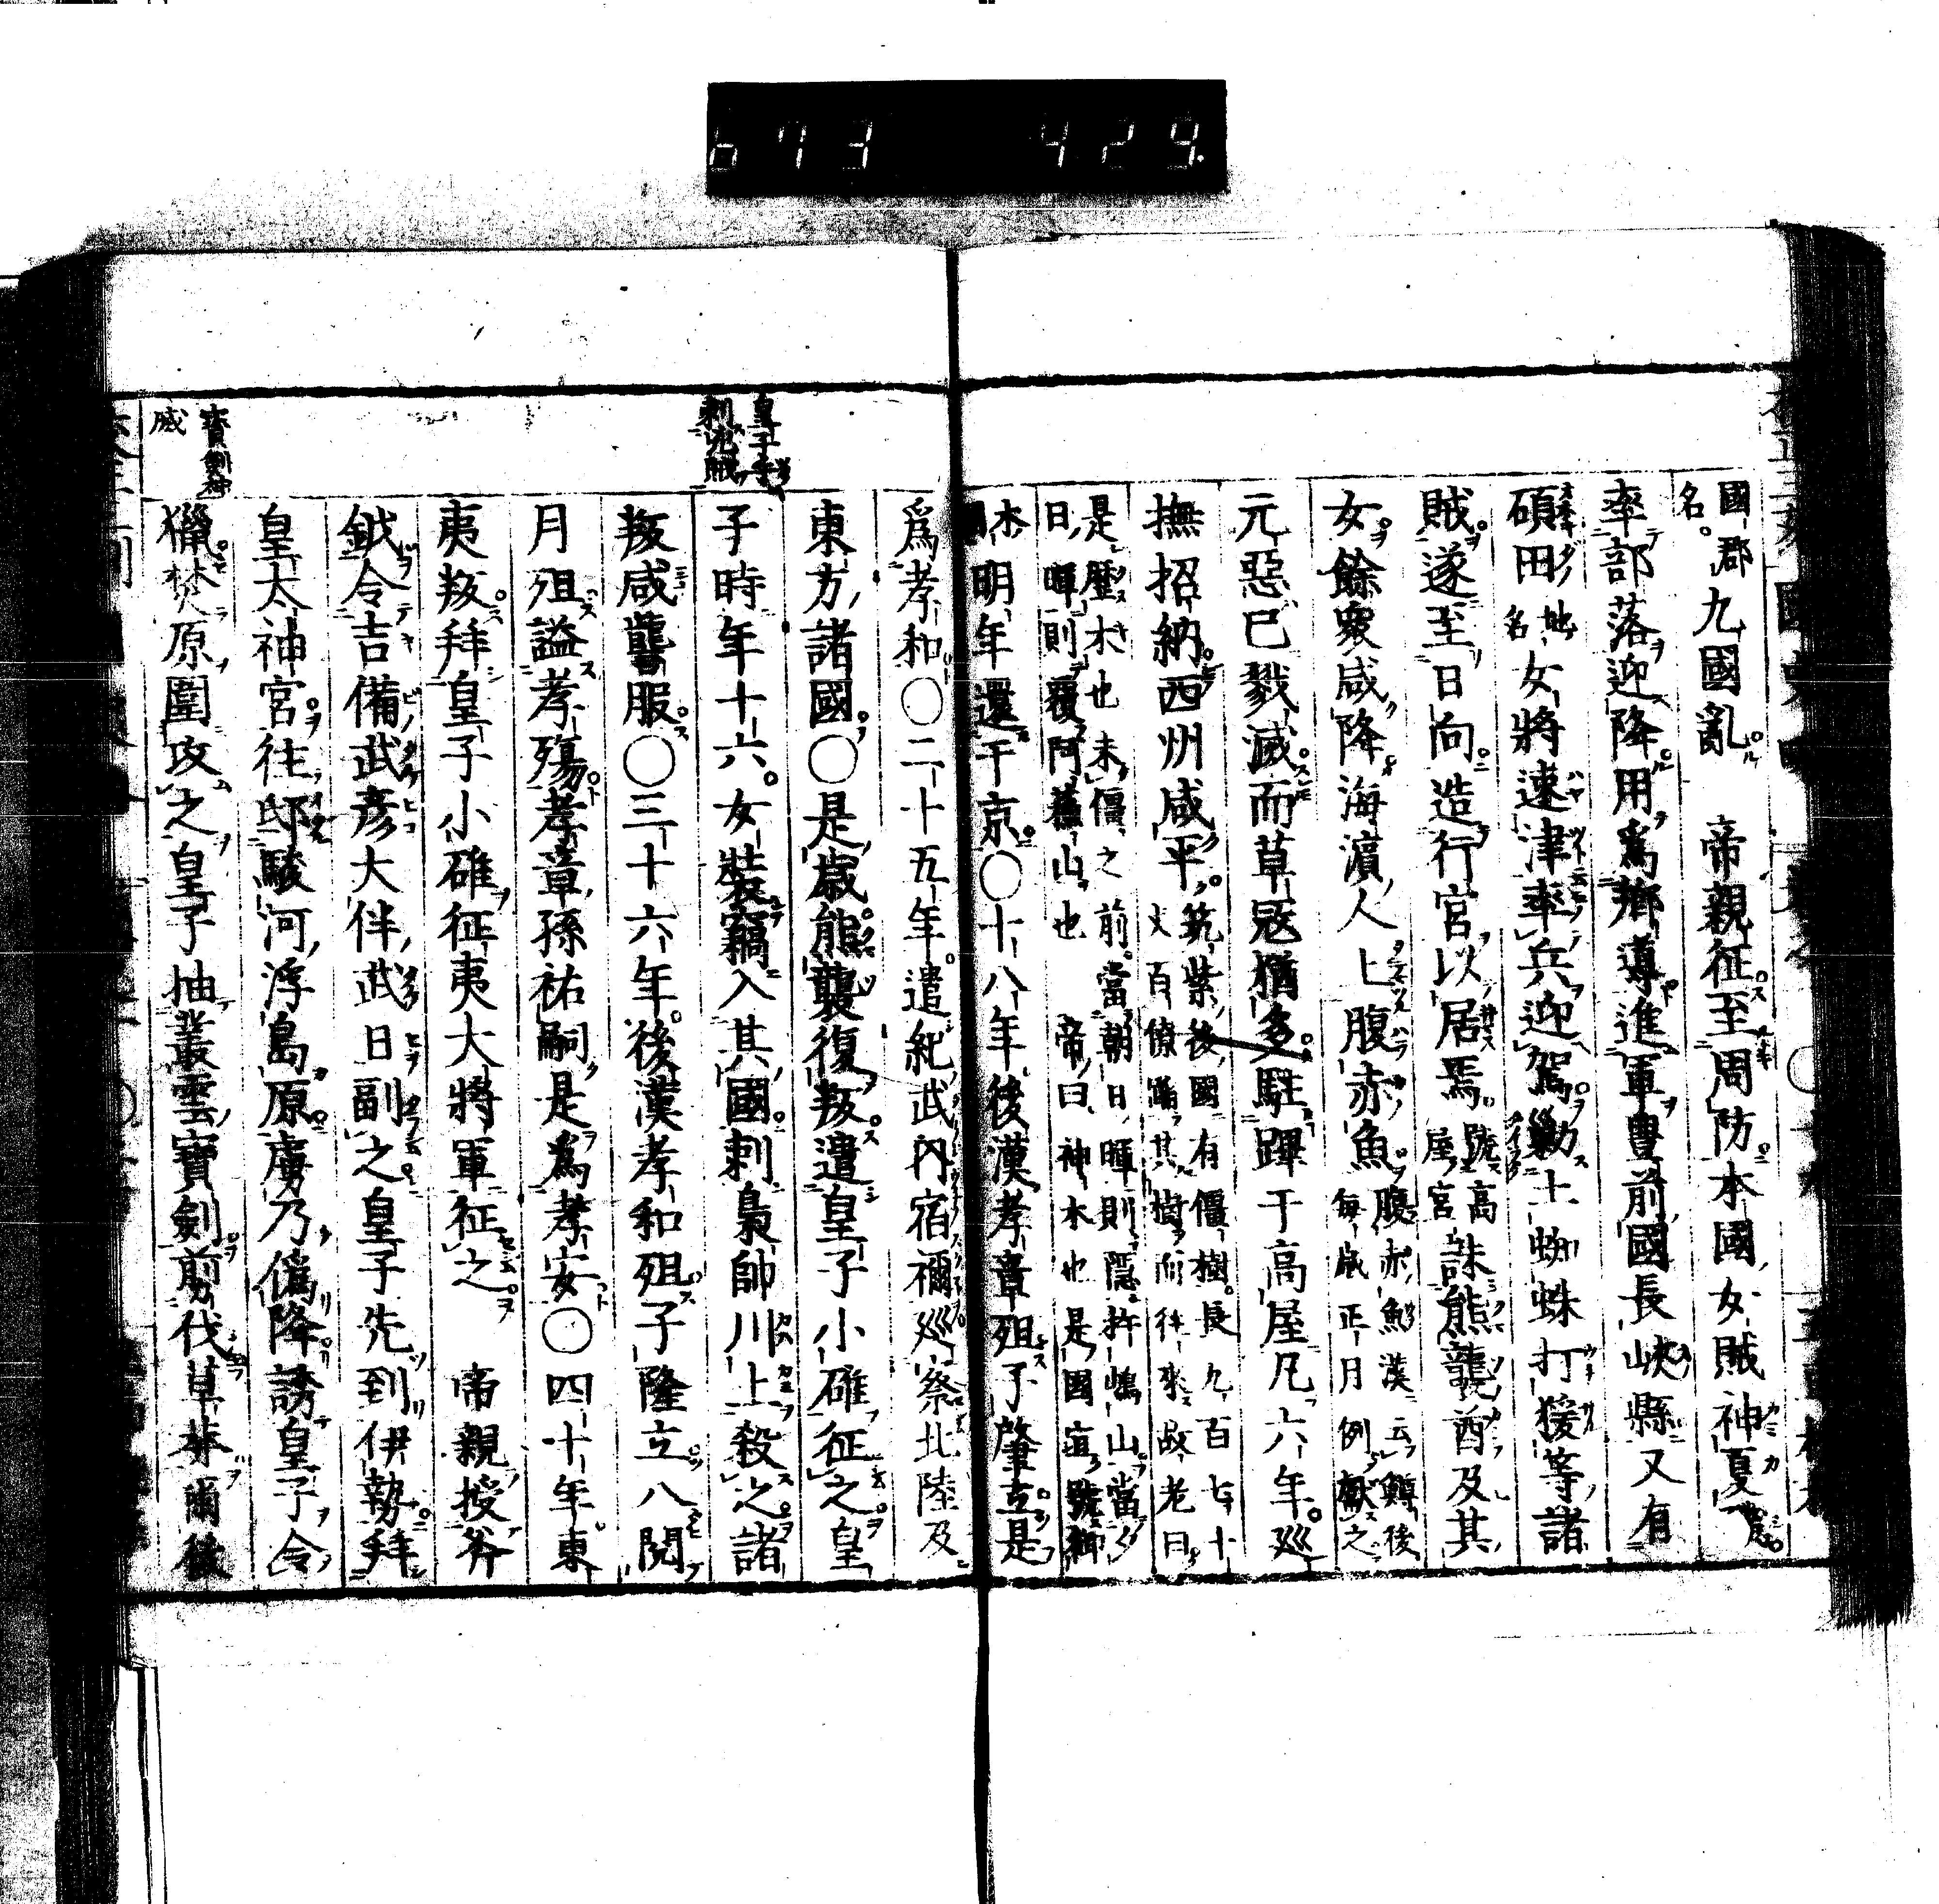 673 429.
國郡名。九國亂 帝親征至周防本國女賊神夏
率部落迎降用爲鄉導進軍豊前國長峽縣又有
碩田地名女將速津率兵迎駕勦土蜘蛛打猨等諸
賊遂至日向造行宮以居焉號高屋宮誅熊襲酋及其
女餘衆咸降海濵人上腹赤魚腹赤魚漢云鱒後每歲正月例獻之
元惡已戮滅而草寇猶多駐蹕于高屋凡六年巡
撫招納西州咸平筑紫後國有僵樹長九百七十丈百僚蹈其樹而往來故老曰
是歷木也未僵之前當朝日暉則隱杵嶋山當夕日暉則覆阿蘓山也 帝曰神木也是國宜號御
木明年還于京○十八年後漢孝章殂子肇立是
爲孝和○二十五年遣紀武內宿禰巡察北陸及
東方諸國○是歲熊襲復叛遣皇子小碓征之皇
皇子
刺兇賊
子時年十六女裝竊入其國刺梟帥川上殺之諸
叛咸聾服○三十六年後漢孝和殂子隆立八閱
月殂謚孝殤孝章孫祐嗣是爲孝安○四十年東
夷叛拜皇子小碓征夷大將軍征之 帝親授斧
鉞令吉備武彥大伴武日副之皇子先到伊勢拜
皇太神宮往邸駿河浮島原虜乃僞降誘皇子令
寶劍神
威
獵焚原圍攻之皇子抽叢雲寶劍剪伐草莽爾後